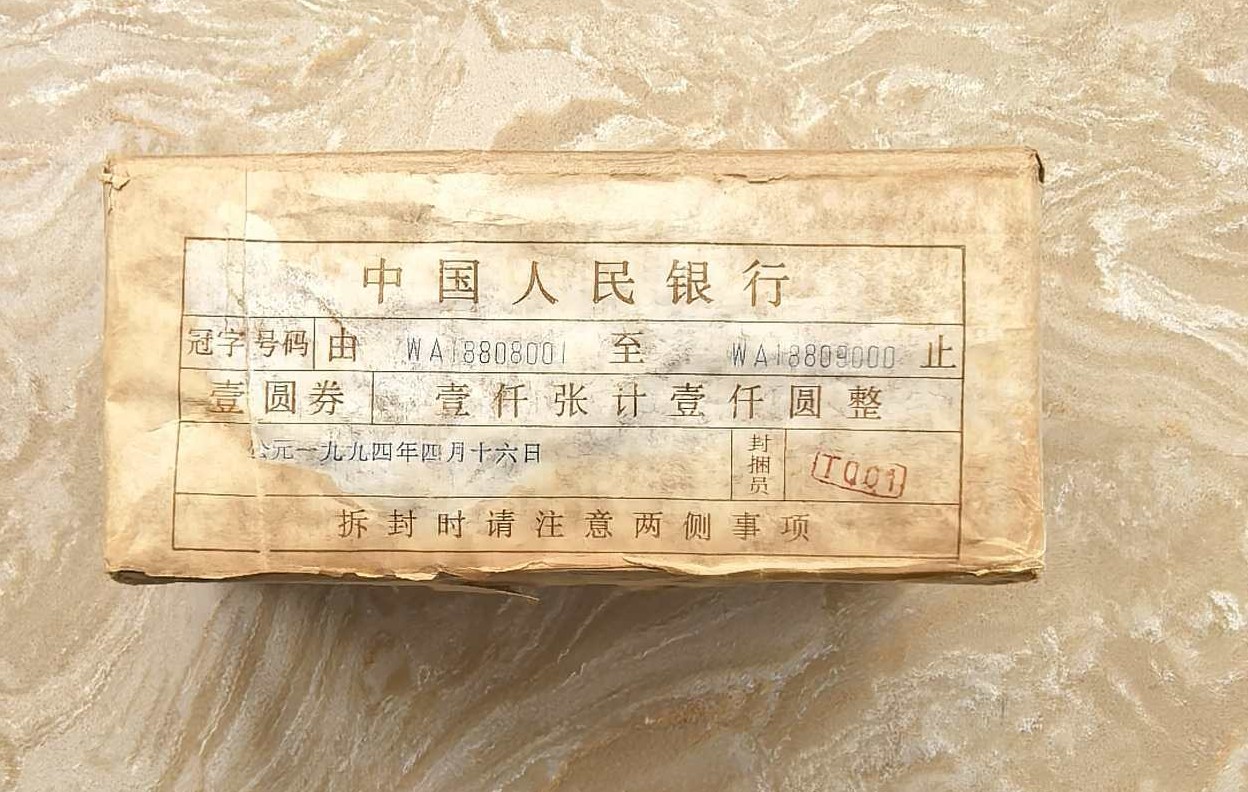 中国人民银行
冠字号码 由 WA18808001 至 WA18809000 止
壹圆券 壹仟张计壹仟圆整
公元一九九四年四月十六日 封捆员 TQQ1
拆封时请注意两侧事项